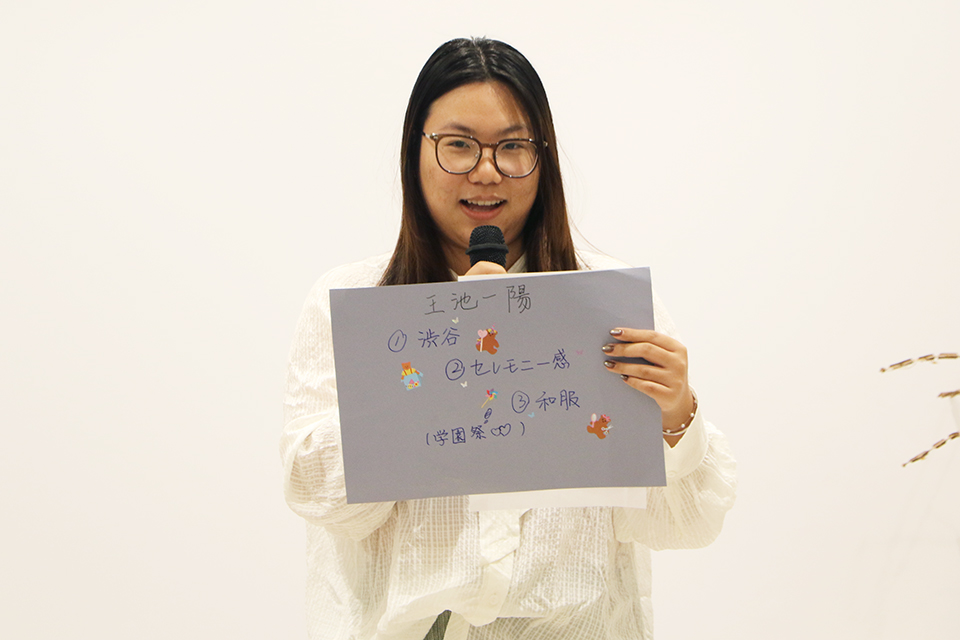 王池一陽
① 渋谷
② セレモニー感
③ 和服
(学園祭♡♡)